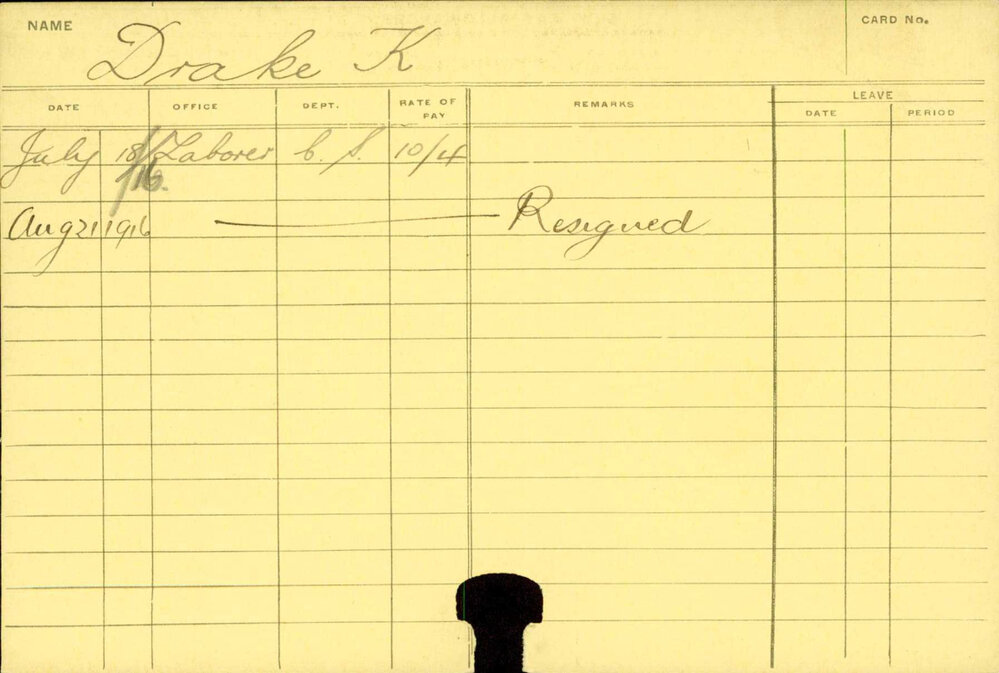 NAME Drake K CARD No.
DATE OFFICE DEPT. RATE OF PAY REMARKS LEAVE
DATE PERIOD
July 18/16. Laborer C. S. 10/4
Aug 21 1916 Resigned